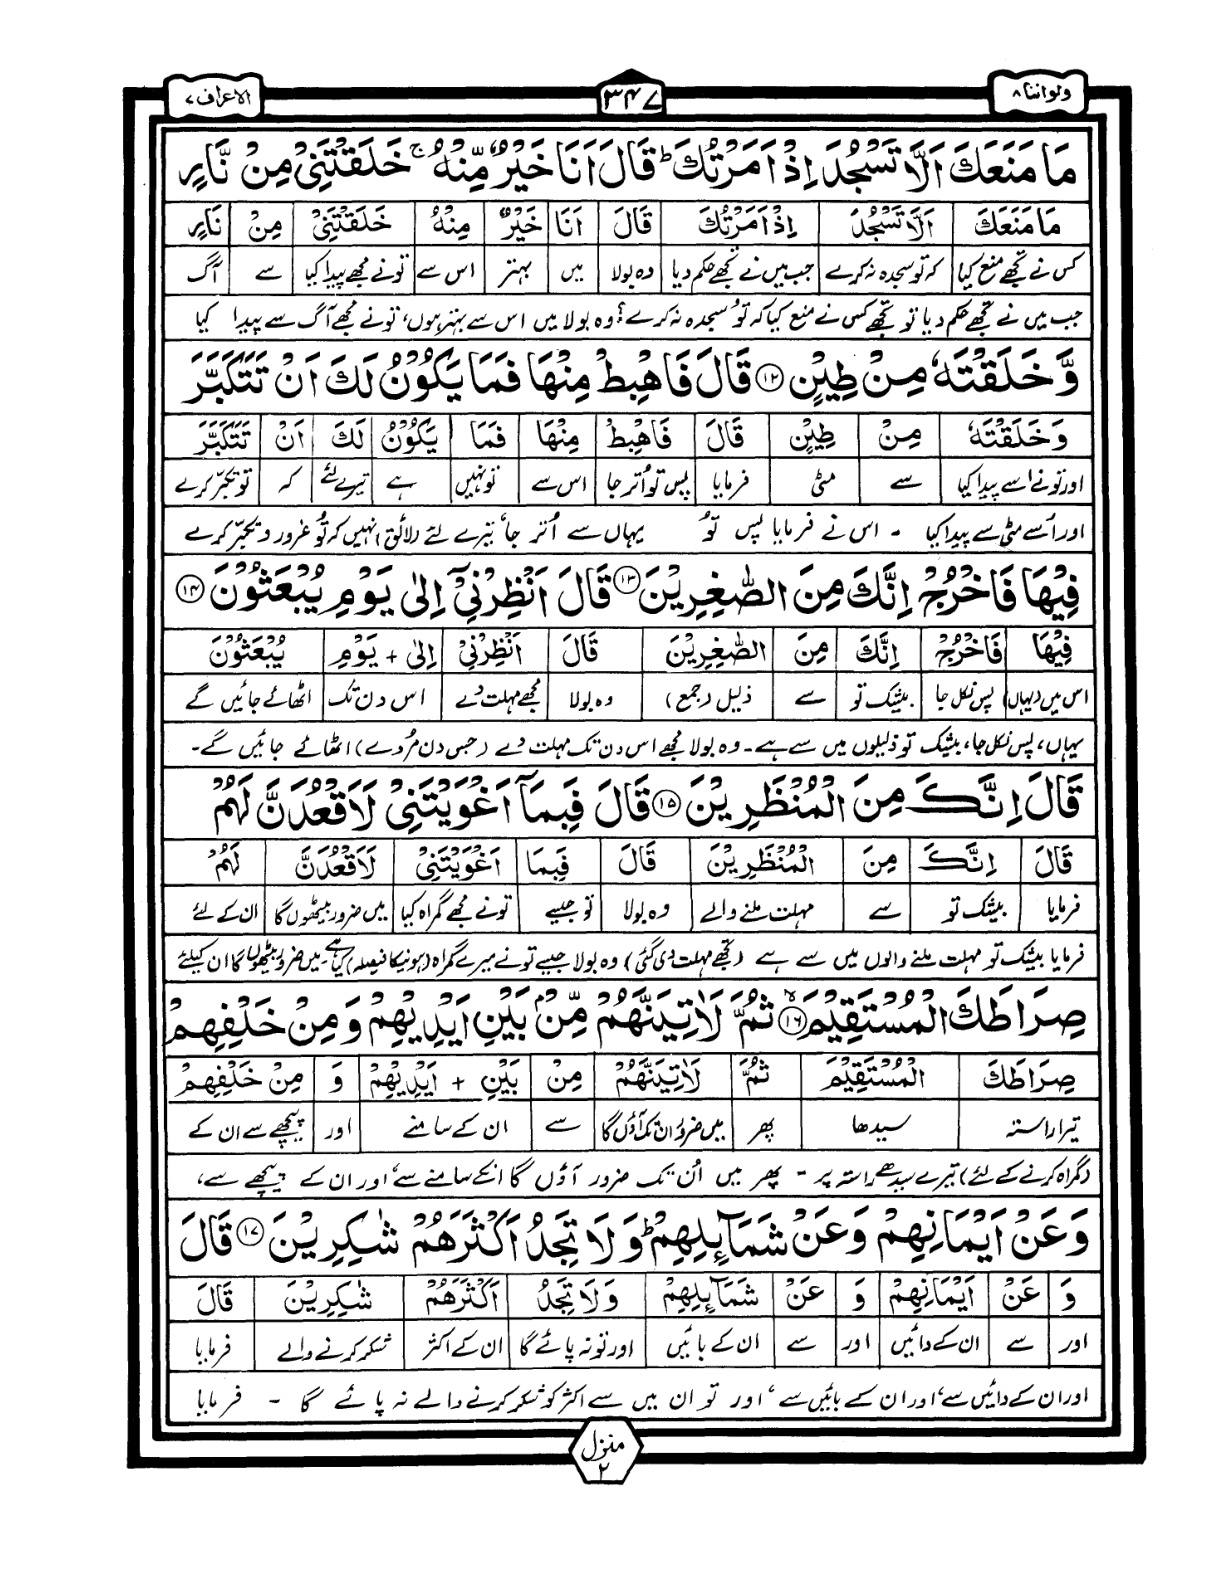 ولواننا ۸
۳۴۷
الاعراف ۷
مَا مَنَعَكَ اَلَّا تَسْجُدَ اِذْ اَمَرْتُكَ ؕ قَالَ اَنَا خَيْرٌ مِّنْهُ ۚ خَلَقْتَنِيْ مِنْ نَّارٍ
مَا مَنَعَكَ اَلَّا تَسْجُدَ اِذْ اَمَرْتُكَ قَالَ اَنَا خَيْرٌ مِنْهُ خَلَقْتَنِيْ مِنْ نَارٍ
کس نے تجھے منع کیا کہ تو سجدہ نہ کرے جب میں نے تجھے حکم دیا وہ بولا میں بہتر اس سے تونے مجھے پیدا کیا سے آگ
جب میں نے تجھے حکم دیا تو تجھے کس نے منع کیا کہ تو سجدہ نہ کرے؟ وہ بولا میں اس سے بہتر ہوں، تونے مجھے آگ سے پیدا کیا
وَّخَلَقْتَهٗ مِنْ طِيْنٍ ۝۱۲ قَالَ فَاهْبِطْ مِنْهَا فَمَا يَكُوْنُ لَكَ اَنْ تَتَكَبَّرَ
وَخَلَقْتَهٗ مِنْ طِيْنٍ قَالَ فَاهْبِطْ مِنْهَا فَمَا يَكُوْنُ لَكَ اَنْ تَتَكَبَّرَ
اور تونے اسے پیدا کیا سے مٹی فرمایا پس تو اُتر جا اس سے تو نہیں ہے تیرے لئے کہ تو تکبّر کرے
اور اُسے مٹی سے پیدا کیا ۔ اس نے فرمایا پس تو یہاں سے اُتر جا، تیرے لئے (لائق) نہیں کہ تو غرور و تکبّر کرے
فِيْهَا فَاخْرُجْ اِنَّكَ مِنَ الصّٰغِرِيْنَ ۝۱۳ قَالَ اَنْظِرْنِيْٓ اِلٰى يَوْمِ يُبْعَثُوْنَ ۝۱۴
فِيْهَا فَاخْرُجْ اِنَّكَ مِنَ الصّٰغِرِيْنَ قَالَ اَنْظِرْنِيْٓ اِلٰى + يَوْمِ يُبْعَثُوْنَ
اس میں (یہاں) پس نکل جا بیشک تو سے ذلیل (جمع) وہ بولا مجھے مہلت دے اس دن تک اٹھائے جائیں گے
یہاں، پس نکل جا، بیشک تو ذلیلوں میں سے ہے۔ وہ بولا مجھے اس دن تک مہلت دے (جس دن مُردے) اٹھائے جائیں گے۔
قَالَ اِنَّكَ مِنَ الْمُنْظَرِيْنَ ۝۱۵ قَالَ فَبِمَآ اَغْوَيْتَنِيْ لَاَقْعُدَنَّ لَهُمْ
قَالَ اِنَّكَ مِنَ الْمُنْظَرِيْنَ قَالَ فَبِمَا اَغْوَيْتَنِيْ لَاَقْعُدَنَّ لَهُمْ
فرمایا بیشک تو سے مہلت ملنے والے وہ بولا تو جیسے تونے مجھے گمراہ کیا میں ضرور بیٹھوں گا ان کے لئے
فرمایا بیشک تو مہلت ملنے والوں میں سے ہے (تجھے مہلت دی گئی) وہ بولا جیسے تونے میرے گمراہ (ہونیکا فیصلہ) کیا ہے۔ میں ضرور بیٹھوں گا ان کیلئے
صِرَاطَكَ الْمُسْتَقِيْمَ ۙ۝۱۶ ثُمَّ لَاٰتِيَنَّهُمْ مِّنْۢ بَيْنِ اَيْدِيْهِمْ وَمِنْ خَلْفِهِمْ
صِرَاطَكَ الْمُسْتَقِيْمَ ثُمَّ لَاٰتِيَنَّهُمْ مِنْ بَيْنِ + اَيْدِيْهِمْ وَ مِنْ خَلْفِهِمْ
تیرا راستہ سیدھا پھر میں ضرور ان تک آؤں گا سے ان کے سامنے اور پیچھے سے ان کے
(گمراہ کرنے کے لئے) تیرے سیدھے راستہ پر ۔ پھر میں اُن تک ضرور آؤں گا انکے سامنے سے، اور ان کے پیچھے سے،
وَعَنْ اَيْمَانِهِمْ وَعَنْ شَمَآئِلِهِمْ ؕ وَلَا تَجِدُ اَكْثَرَهُمْ شٰكِرِيْنَ ۝۱۷ قَالَ
وَ عَنْ اَيْمَانِهِمْ وَ عَنْ شَمَآئِلِهِمْ وَلَا تَجِدُ اَكْثَرَهُمْ شٰكِرِيْنَ قَالَ
اور سے ان کے دائیں اور سے ان کے بائیں اور تو نہ پائے گا ان کے اکثر شکر کرنے والے فرمایا
اور ان کے دائیں سے، اور ان کے بائیں سے، اور تو ان میں سے اکثر کو شکر کرنے والے نہ پائے گا ۔ فرمایا
منزل
۲